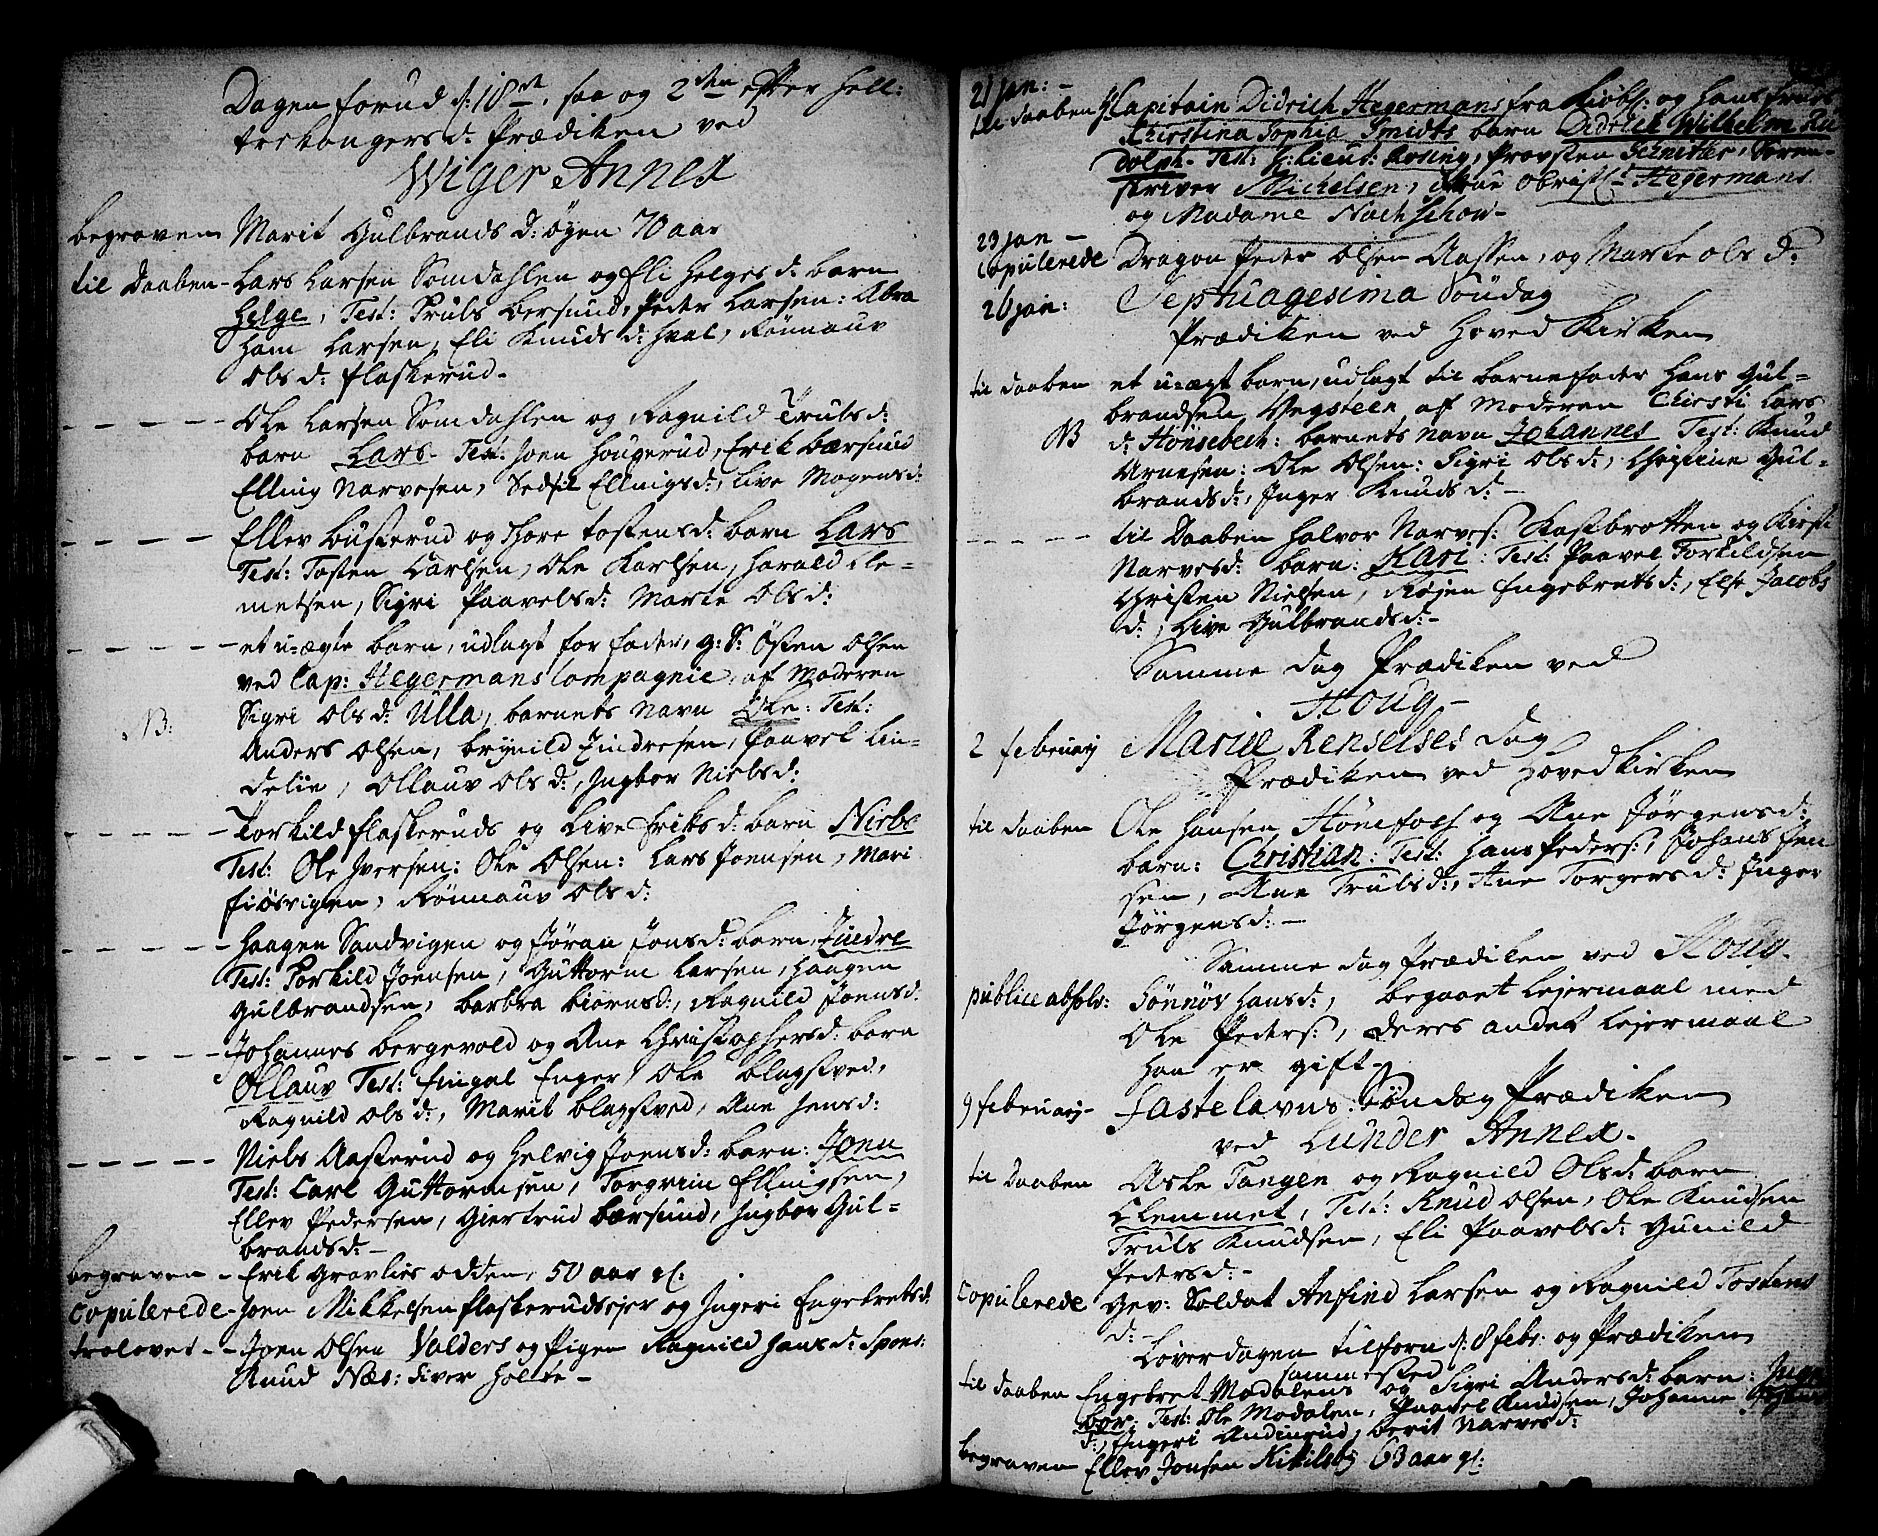 Dagen forud d: 18de, saa og 2den efter Hell:
trekongers d: Prædiken ved
Wiger Annex
begraven Marit Gulbrands d: Øyen 70 aar
til Daaben - Lars Larsen Somdahlen og Eli Helges d: barn
Helge, Test: Truls Bersund, Peder Larsen: Abra
ham Larsen, Eli Knuds d: Hval, Rönnauv
Ols d: Flaskerud -
- - - - Ole Larsen Somdahlen og Ragnild Truls d:
barn Lars - Test: Joen Hougerud, Erik Bærsund
Elling Narvesen, Sedsel Ellings d:, Live Mogens d:
- - - - Ellev Busterud og Thore Tostens d: barn Lars
Test: Tosten Carlsen, Ole Karlsen, Harald Cle-
metsen, Sigri Paavels d: Marte Ols d:
- - - - et u-ægte barn, udlagt for fader, g: S: Østen Olsen
ved Cap: Hegermans Compagnie, af Moderen
NB: Sigri Ols d: Ulla, barnets Navn Ole: Test:
Anders Olsen, Brynild Jindresen, Paavel Lin-
delie, Ollauv Ols d:, Ingbor Niels d:
- - - - Torkild Flaskeruds og Live Eriks d: barn Niels
Test: Ole Iversen: Ole Olsen: Lars Joensen, Mari
Fiösvigen, Rönnauv Ols d:
- - - - Haagen Sandvigen og Jöran Jons d: barn, Jindre
Test: Torkild Joensen, Guttorm Larsen, Haagen
Gulbrandsen, Barbra Biörns d:, Ragnild Joens d:
- - - - Johannes Bergevold og Ane Christophers d: barn
Ollauv Test: Fingal Enger, Ole Blagstved,
Ragnild Ols d:, Marit Blagstved, Ane Jens d:
- - - - Niels Aasterud og Helvig Joens d: barn: Jonn
Test: Carl Guttormsen, Torgrim Ellingsen,
Ellev Pedersen, Giertrud Bærsund, Ingbor Gul-
brands d: -
begraven - Erik Gravlies odden, 50 aar gl:
Copulerede - Joen Mikkelsen Flaskerudeier og Ingeri Engebrets d:
trolovet - - Joen Olsen Valders og Pigen Ragnild Hans d: Spons:
Knud Næs: Siver Holte -
21 Jan: -
til Daaben Hr Capitain Didrich Hegermans fra Kiöbh: og Hans Frues
Christina Sophia Smidts barn Didrich Wilhelm Ru
dolph - Test: Hr: Lieut: Rosing, Provsten Schnitler, Soren-
skriver Michelsen, Frue Obristl: Hegermans
og Madame Nachschow -
23 Jan -
Copulerede Dragon Peder Olsen Aassen, og Marte Ols d:
26 Jan: Septuagesima Söndag
Prædiken ved Hoved Kirken
til Daaben et u-ægt barn, udlagt til barnefader Hans Gul-
brandsen Vegsteen, af Moderen Chirsti Lars
NB d: Hönsebech: barnets Navn Johannes Test: Knud
Arnesen: Ole Olsen: Sigri Ols d:, Christine Gul-
brands d:, Inger Knuds d: -
- - - - til Daaben Halvor Narves: Kastbrotten og Kirsti
Narves d: barn: Kari: Test: Paavel Torkildsen
Christen Nielsen, Röjen Engebretts d:, Else Jacobs
d:, Live Gulbrands d: -
Samme dag Prædiken ved
Houg -
2 February Mariæ Renselses dag
Prædiken ved Hovedkirken
til Daaben Ole Hansen Hönefoss og Ane Jörgens d:
barn: Christian: Test: Hans Peders:, Johans Jen
sen, Ane Truls d:, Ane Torgers d: Inger
Jörgens d: -
Samme dag Prædiken ved Houg -
publice absolv: Sönnöv Hans d:, begaaet Lejermaal med
Ole Peders:, deres andet Lejermaal
han er gift -
9 February - Fastelavns Söndag Prædiken
ved Lunder Annex -
til Daaben Aske Tangen og Ragnild Ols d: barn
Clemmet, Test: Knud Olsen, Ole Knudsen
Truls Knudsen, Eli Paavels d: Gunild
Peders d: -
Copulerede Gev: Soldat Anfind Larsen og Ragnild Tostens
d: -
Löverdagen tilforn d: 8 Febr: og Prædiken
sammested
til Daaben Engebret Modalens og Sigri Anders d: barn: Ing
bor, Test: Ole Modalen, Paavel Knudsen, Johanne
d:, Ingeri Andinrud, Berit Narves d:
begraven Ellev Jonsen Kittilsby 63 aar gl: